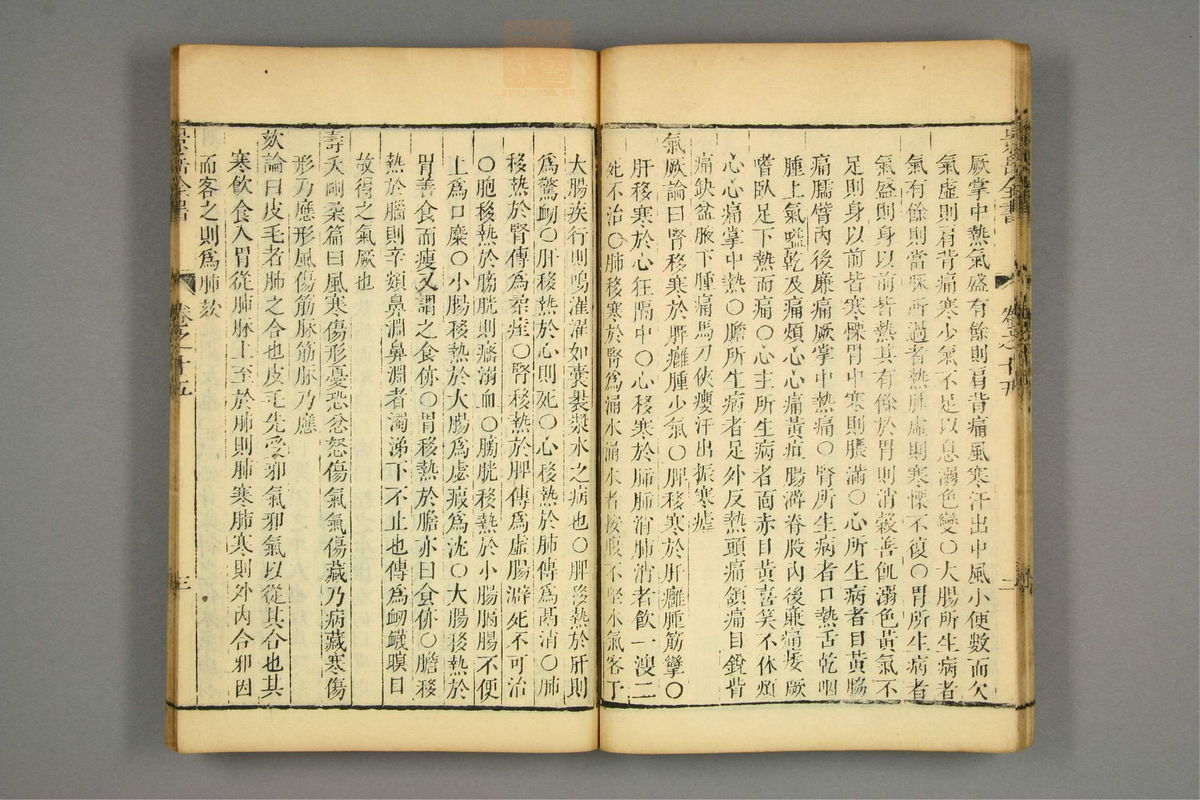 厥掌中熱氣盛有餘則肩背痛風寒汗出中風小便數而欠
氣虛則肩背痛寒少氣不足以息溺色變○大腸所生病者
氣有餘則當脉所過者熱腫虛則寒慄不復○胃所生病者
氣盛則身以前皆熱其有餘於胃則消穀善飢溺色黃氣不
足則身以前皆寒慄胃中寒則脹滿○心所生病者目黃脇
痛臑臂內後廉痛厥掌中熱痛○腎所生病者口熱舌乾咽
腫上氣嗌乾及痛煩心心痛黃疸腸澼脊股內後廉痛痿厥
嗜臥足下熱而痛○心主所生病者面赤目黃喜笑不休煩
心心痛掌中熱○膽所生病者足外反熱頭痛頷痛目銳眥
痛缺盆腋下腫痛馬刀俠癭汗出振寒瘧
氣厥論曰腎移寒於脾癰腫少氣○脾移寒於肝癰腫筋攣○
肝移寒於心狂膈中○心移寒於肺肺消肺消者飲一溲二
死不治○肺移寒於腎爲涌水涌水者按腹不堅水氣客于
大腸疾行則鳴濯濯如囊裹漿水之病也○脾移熱於肝則
爲驚衂○肝移熱於心則死○心移熱於肺傳爲鬲消○肺
移熱於腎傳爲柔痓○腎移熱於脾傳爲虛腸澼死不可治
○胞移熱於膀胱則癃溺血○膀胱移熱於小腸膈腸不便
上爲口糜○小腸移熱於大腸爲虙瘕爲沈○大腸移熱於
胃善食而瘦又謂之食㑊○胃移熱於膽亦曰食㑊○膽移
熱於腦則辛頞鼻淵鼻淵者濁涕下不止也傳爲衂衊瞑目
故得之氣厥也
壽夭剛柔篇曰風寒傷形憂恐忿怒傷氣氣傷藏乃病藏寒傷
形乃應形風傷筋脉筋脉乃應
欬論曰皮毛者肺之合也皮毛先受邪氣邪氣以從其合也其
寒飲食入胃從肺脉上至於肺則肺寒肺寒則外內合邪因
而客之則爲肺欬
景岳全書
卷之十五
三
zysj.com.cn